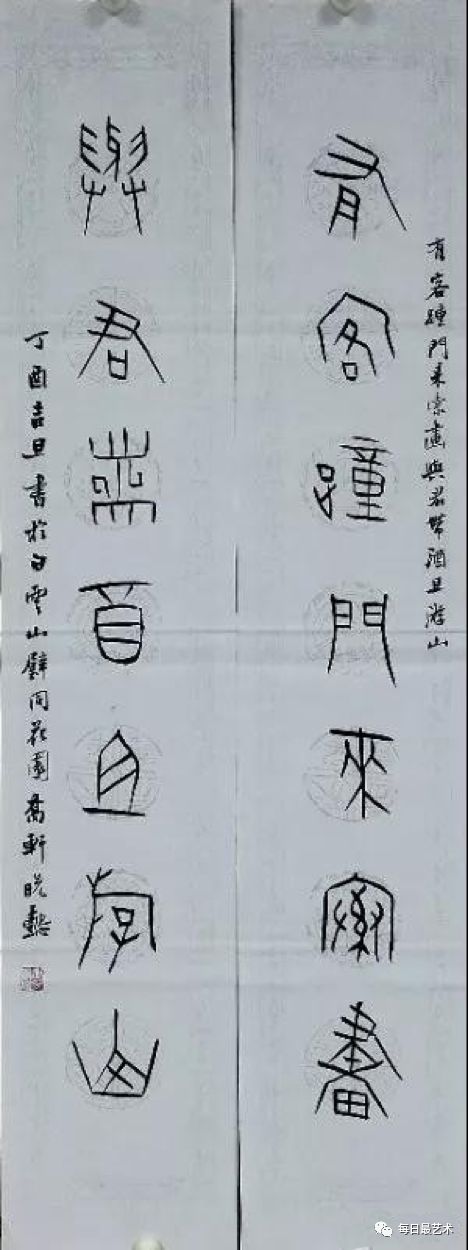 有客踵門来索畫與君帶酒且游山
有客踵門來索畫
與君帶酒且游山
丁酉吉旦書於白雲山花園
每日最艺术